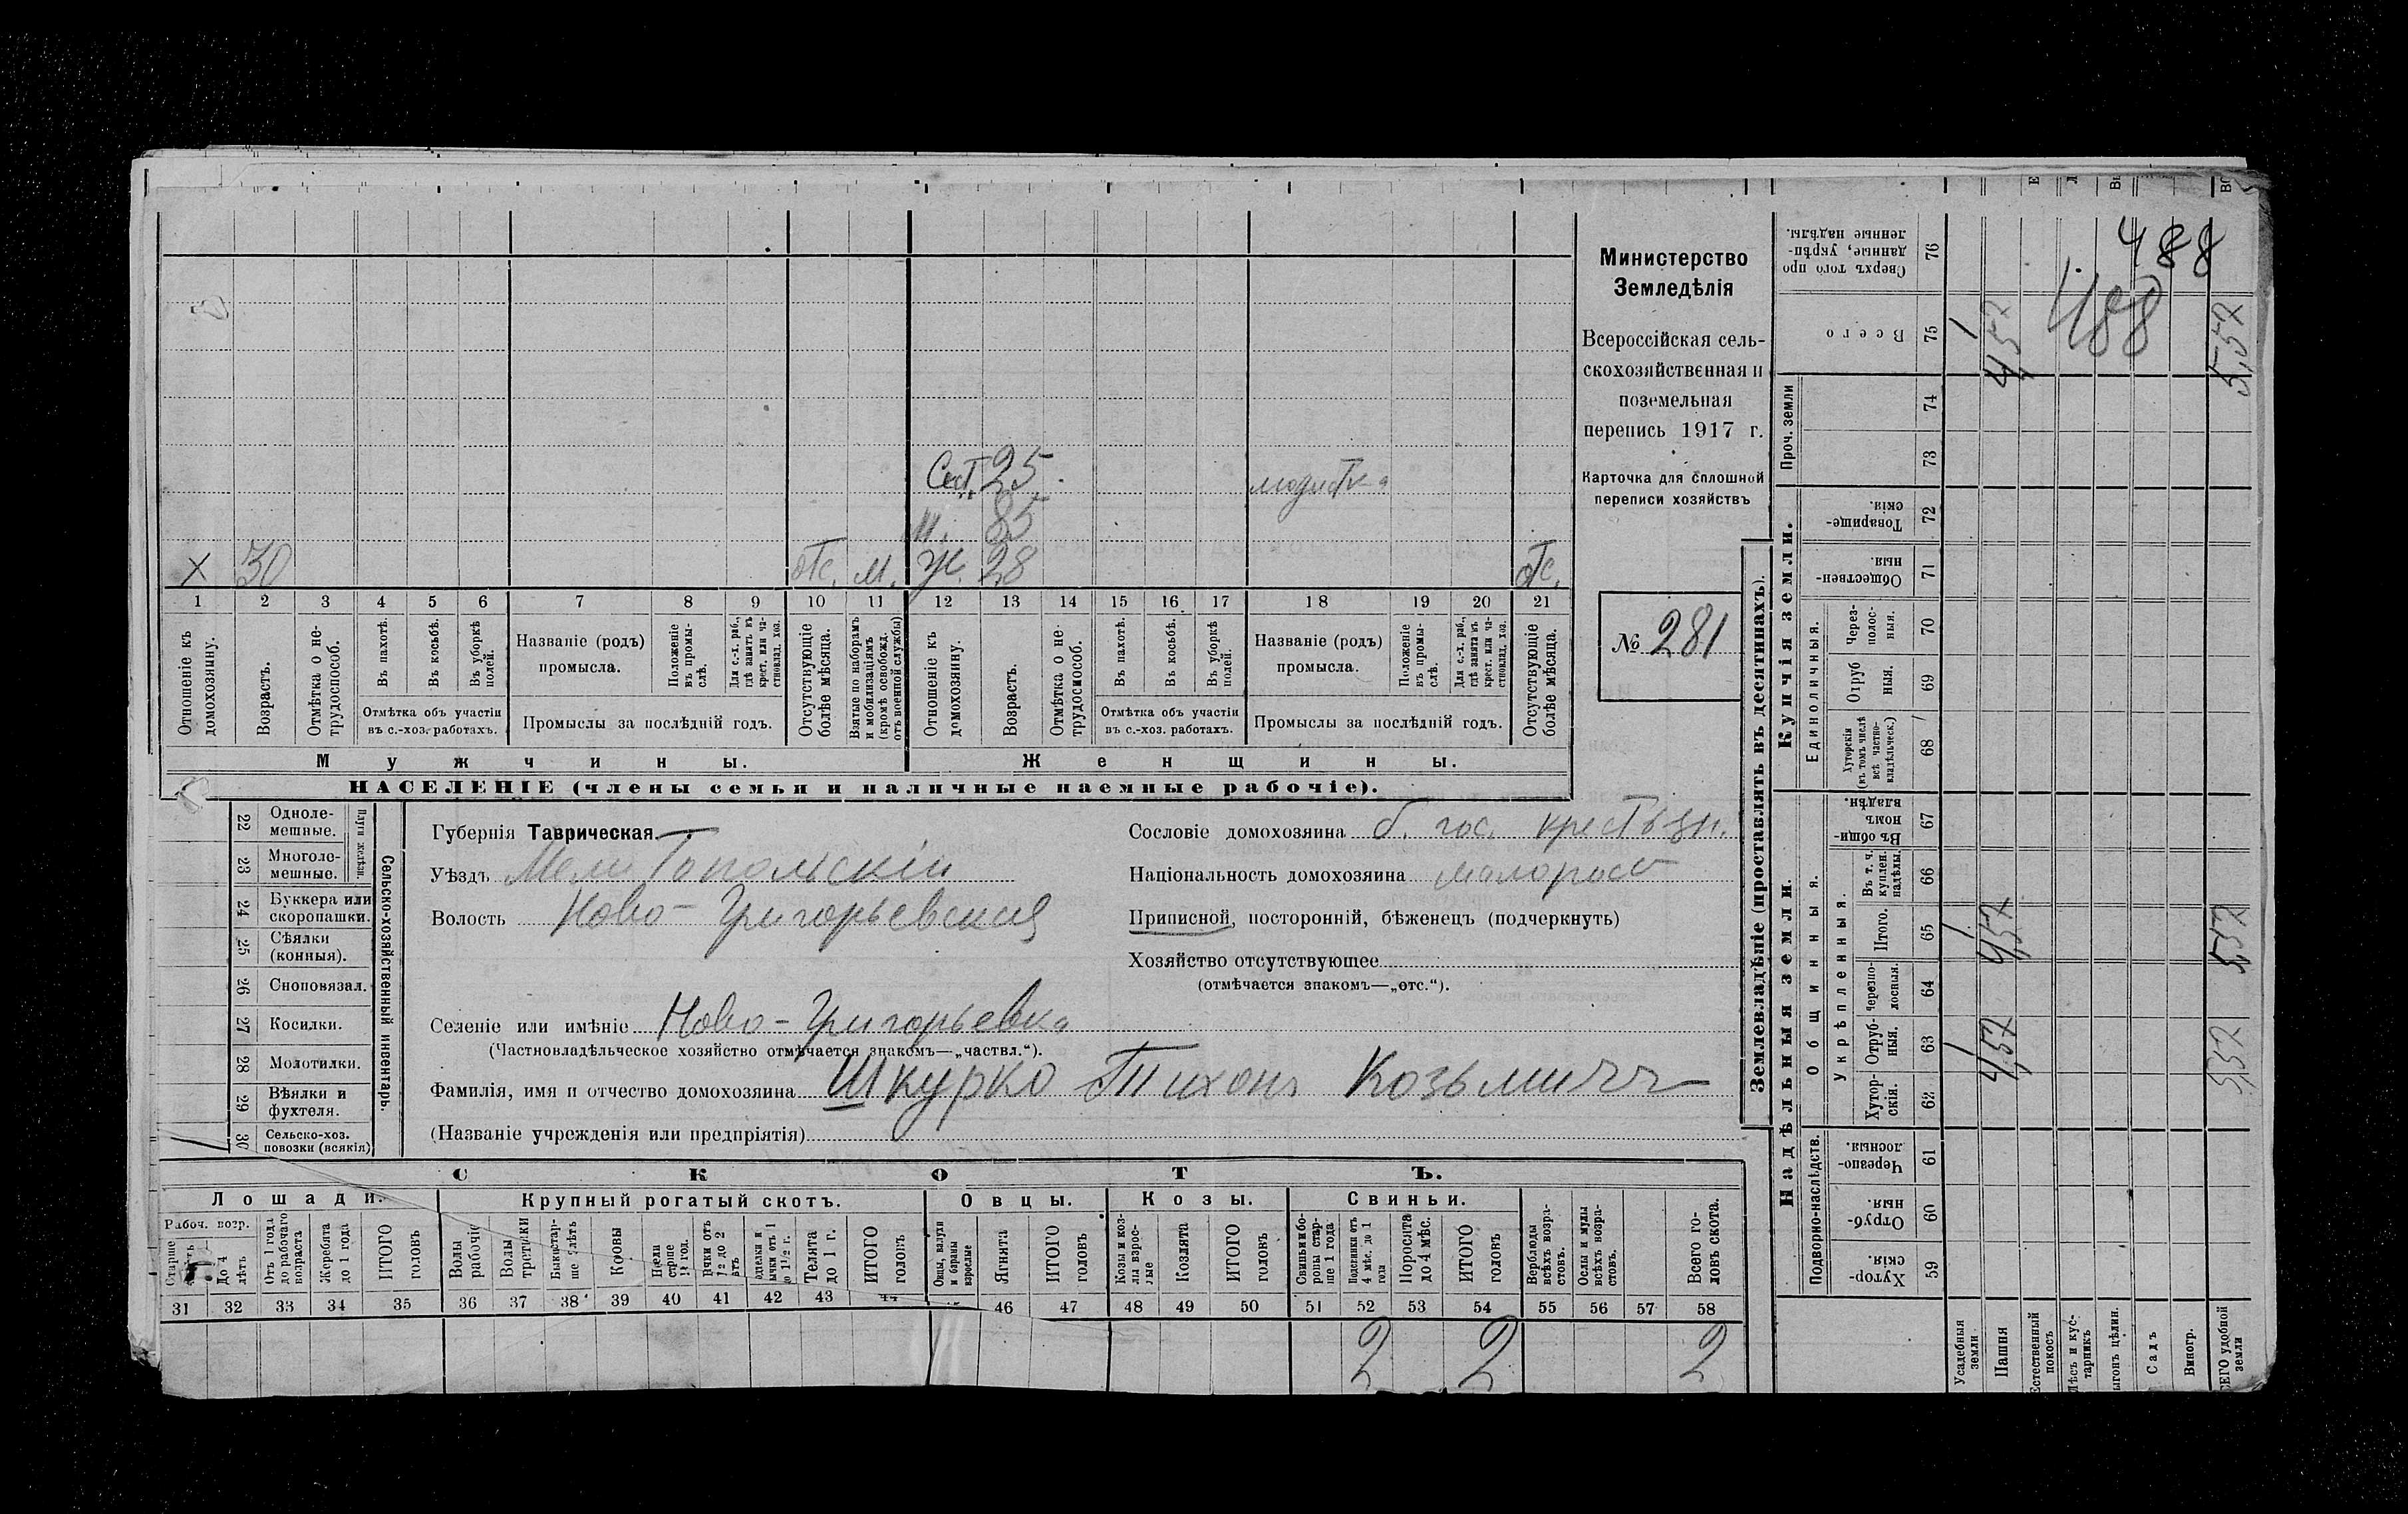 Сест. 25.
модистка
м. 85
х 30 отс. м. ж. 28 отс.
1 2 3 4 5 6 7 8 9 10 11 12 13 14 15 16 17 18 19 20 21
Отношеніе къ домохозяину.
Возрастъ.
Отмѣтка о нетрудоспособ.
Въ пахотѣ.
Въ косьбѣ.
Въ уборкѣ полей.
Отмѣтка объ участіи
въ с.-хоз. работахъ.
Названіе (родъ)
промысла.
Положеніе въ промыслѣ.
Для с.-х. раб., гдѣ занятъ въ крест. или частновлад. хоз.
Промыслы за послѣдній годъ.
Отсутствующіе болѣе мѣсяца.
Взятые по наборамъ и мобилизаціямъ (кромѣ освобожд. отъ военной службы)
Отношеніе къ домохозяину.
Возрастъ.
Отмѣтка о нетрудоспособ.
Въ пахотѣ.
Въ косьбѣ.
Въ уборкѣ полей.
Отмѣтка объ участіи
въ с.-хоз. работахъ.
Названіе (родъ)
промысла.
Положеніе въ промыслѣ.
Для с.-х. раб., гдѣ занятъ въ крест. или частновлад. хоз.
Промыслы за послѣдній годъ.
Отсутствующіе болѣе мѣсяца.
Мужчины. Женщины.
НАСЕЛЕНІЕ (члены семьи и наличные наемные рабочіе).
Министерство
Земледѣлія
Всероссійская сель-
скохозяйственная и
поземельная
перепись 1917 г.
Карточка для сплошной
переписи хозяйствъ
№ 281
Сельско-хозяйственный инвентарь.
Плуги желѣзн.
22 Одноле-
мешные.
23 Многоле-
мешные.
24 Буккера или
скоропашки.
25 Сѣялки
(конныя).
26 Сноповязал.
27 Косилки.
28 Молотилки.
29 Вѣялки и
фухтеля.
30 Сельско-хоз.
повозки (всякія)
1
Губернія Таврическая
Уѣздъ Мелитопольскій
Волость Ново-Григорьевская
Сословіе домохозяина б. гос. крестьян.
Національность домохозяина малоросс
Приписной, посторонній, бѣженецъ (подчеркнуть)
Хозяйство отсутствующее
(отмѣчается знакомъ—„отс.“).
Селеніе или имѣніе Ново-Григорьевка
(Частновладѣльческое хозяйство отмѣчается знакомъ—„частвл.“).
Фамилія, имя и отчество домохозяина Шкурко Тихонъ Козьмичъ
(Названіе учрежденія или предпріятія)
СКОТЪ.
Лошади. Крупный рогатый скотъ. Овцы. Козы. Свиньи.
Рабоч. возр.
Старше
До 4 лѣтъ
Отъ 1 года до рабочаго возраста
Жеребята до 1 года
ИТОГО головъ
Волы рабочіе
Волы третьяки
Коровы
Телята до 1 г.
ИТОГО головъ
Овцы, валухи и бараны взрослые
Ягнята
ИТОГО головъ
Козы и козлы взрослые
Козлята
ИТОГО головъ
Свиньи и боровы старше 1 года
Подсвинки отъ 4 мѣс. до 1 года
Поросята до 4 мѣс.
ИТОГО головъ
Верблюды всѣхъ возрастовъ.
Ослы и мулы всѣхъ возрастовъ.
Всего головъ скота.
31 32 33 34 35 36 37 38 39 40 41 42 43 44 46 47 48 49 50 51 52 53 54 55 56 57 58
2 2 2
Землевладѣніе (проставлять въ десятинахъ).
Надѣльныя земли. Купчія земли. Проч. земли
Подворно-наслѣдств.
Общинныя.
Укрѣпленныя.
Единоличныя.
Хуторскія. 59
Отрубныя. 60
Черезполосныя. 61
Хуторскія. 62
Отрубныя. 63
Черезполосныя. 64
Итого. 65
Въ т. ч. куплен. надѣлы. 66
Въ общинномъ владѣн. 67
Хуторскія (въ томъ числѣ всѣ частновладѣльческ.) 68
Отрубныя. 69
Черезполосныя. 70
Общественныя. 71
Товарищескія. 72
73
74
Всего 75
Сверхъ того проданные, укрѣпленные надѣлы. 76
Усадебныя земли 1 1 1
Пашня 4,57 4,57 4,57
Естественный покосъ
Лѣсъ и кустарникъ
Выгонъ цѣлин.
Садъ
Виногр.
ВСЕГО удобной земли 5,57 5,57 5,57
488
488